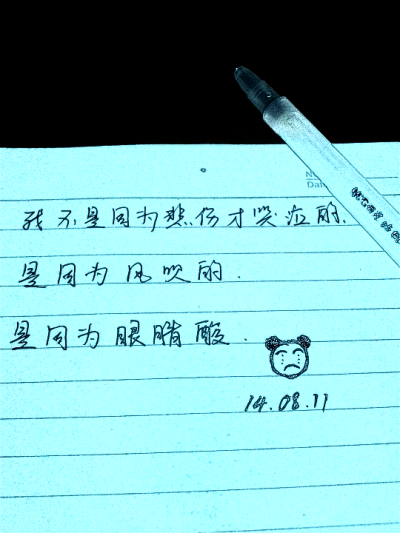 No
Dat
我不是因为悲伤才哭泣的.
是因为风吹的.
是因为眼睛酸.
14.08.11